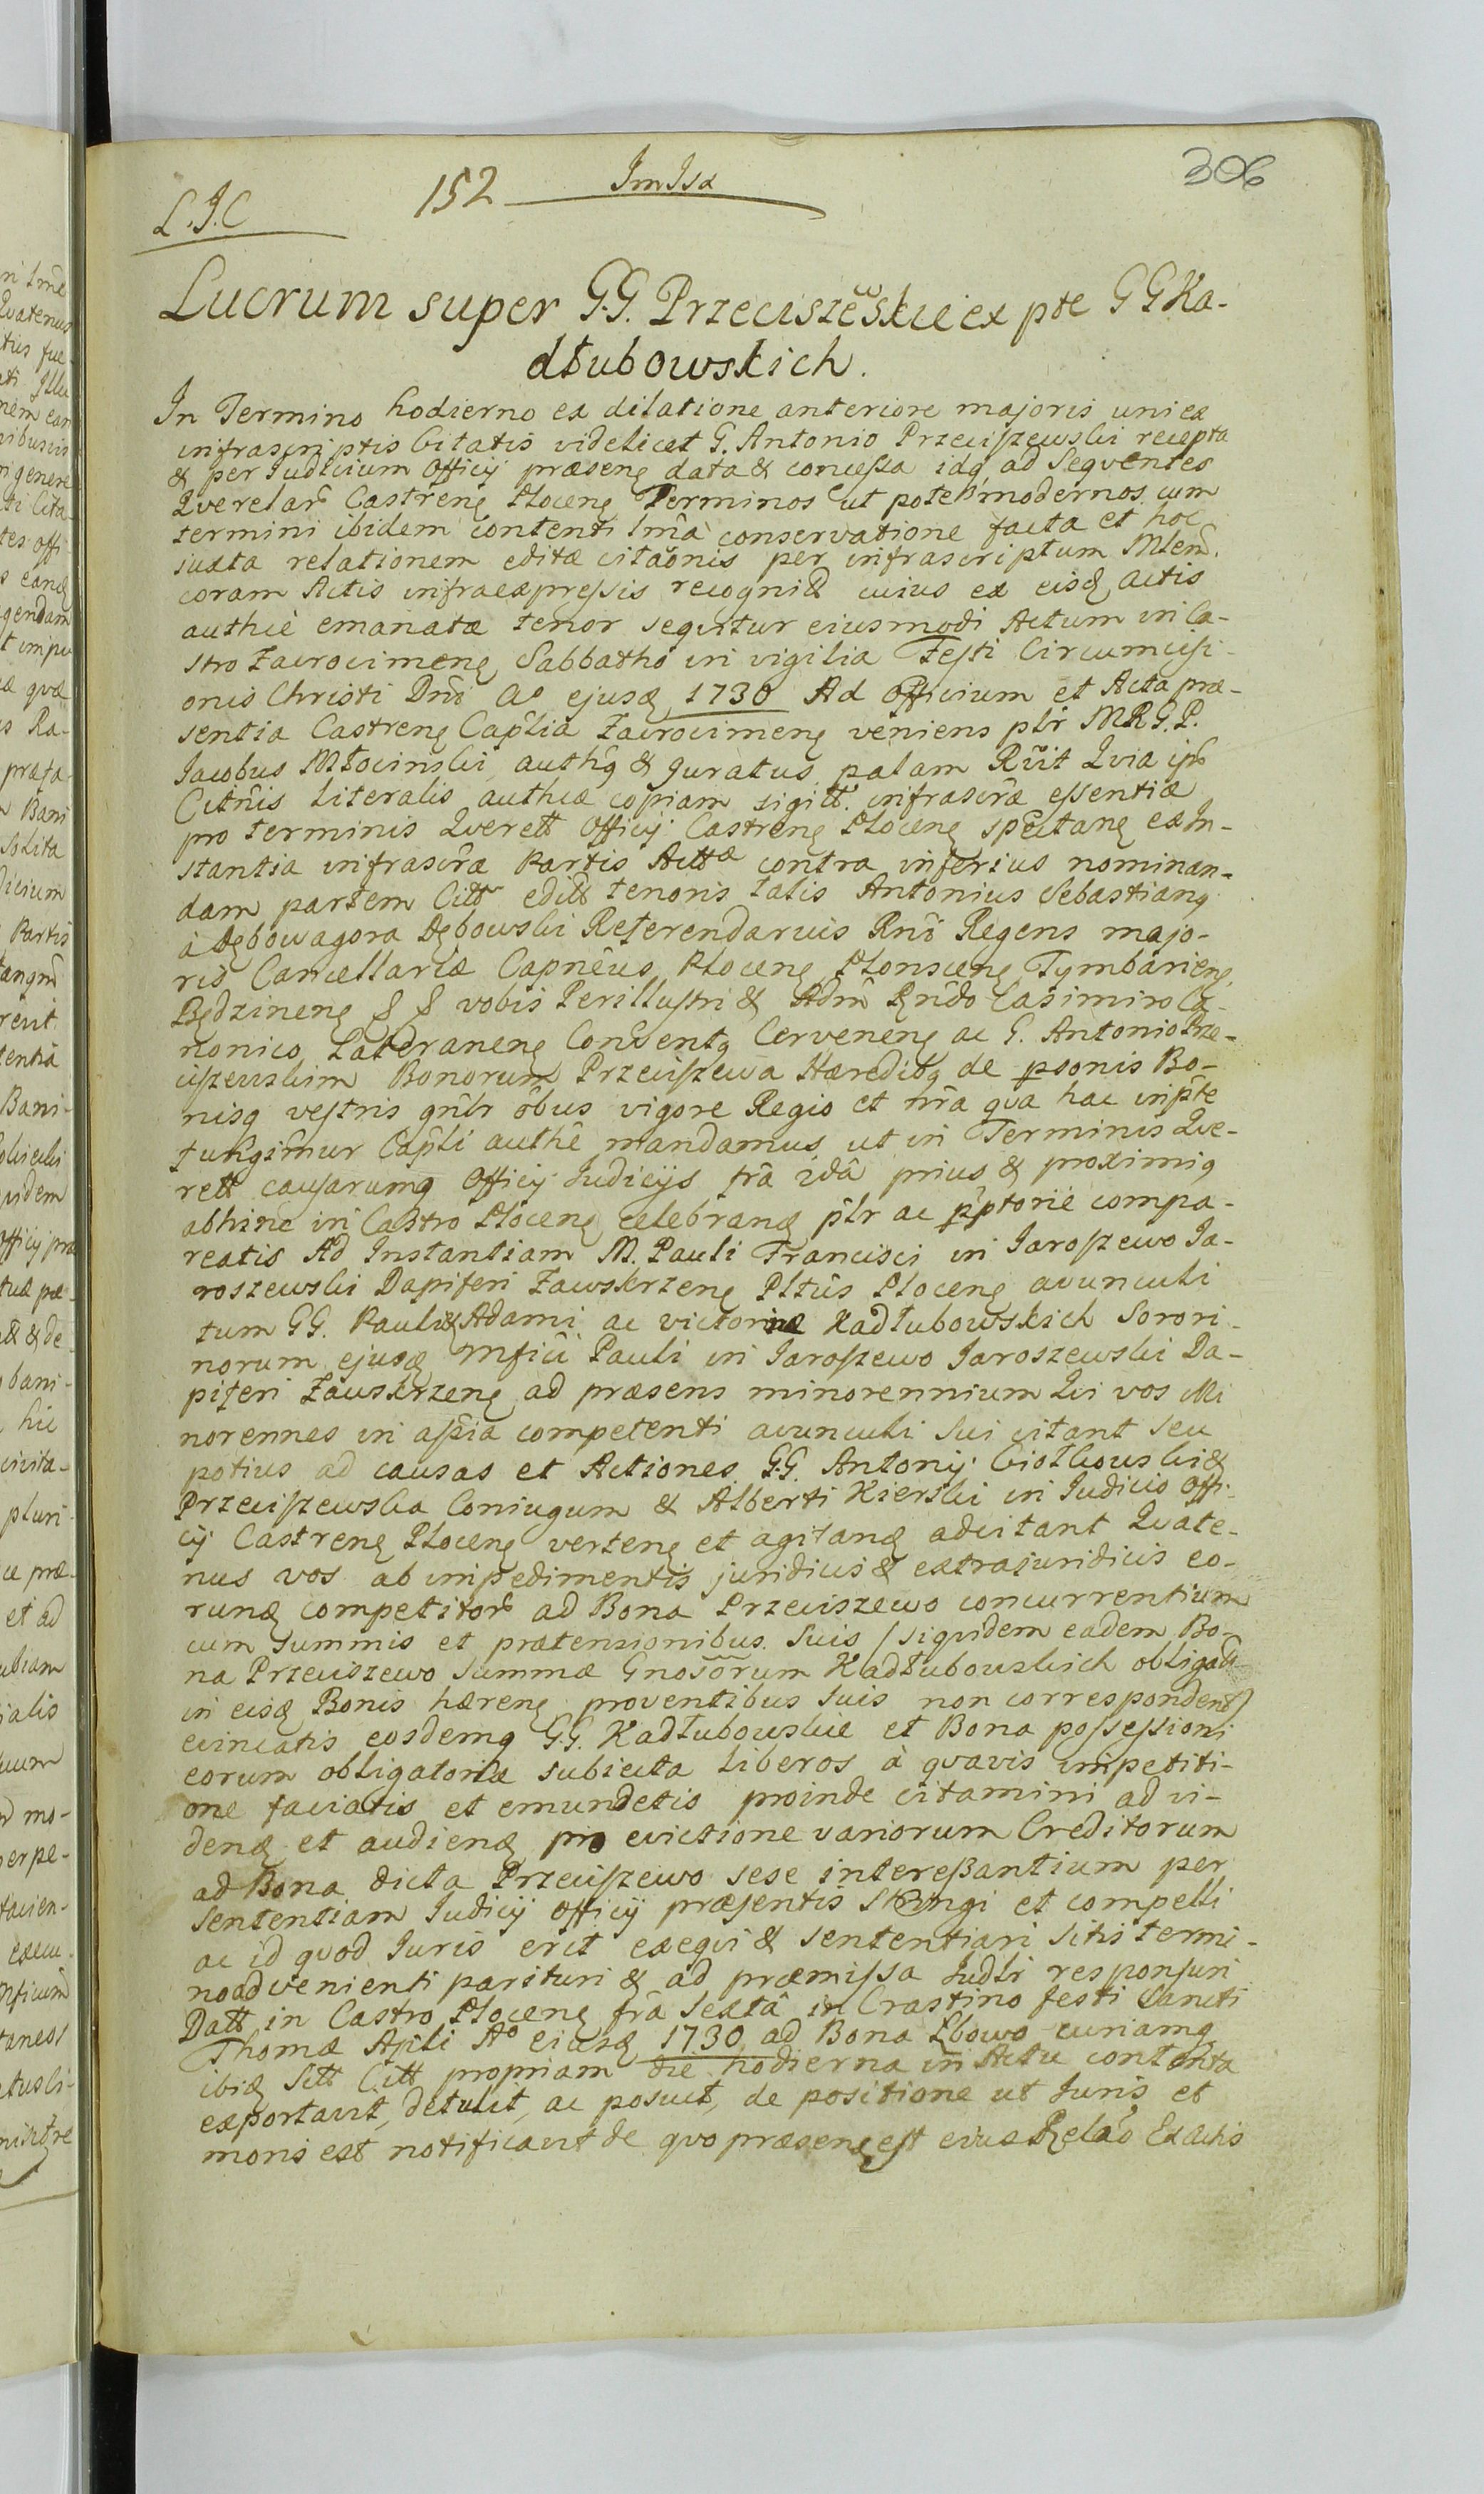 306
152 ImIsa
L.J.C
Lucrum super G.G. Przeciszewskie ex pte GG Ka-
dłubowskich.
In Termino hodierno ex dilatione anteriore majoris unica
infrascriptis Citatis videlicet G. Antonio Przeciszewski recepta
& per Judicium Officij præsenę data & concessa idq ad Seqventes
Qverelarũ Castrenę Płocenę Terminos ut pote modernos cum
termini ibidem contenti lmâ conservatione facta et hoc
juxta relationem editæ citaõnis per infrascriptum Mlem̃.
coram Actis infraexpressis recognitæ cuius ex eisdę actis
authcè emanatæ tenor seqvitur eiusmodi Actum in Ca-
stro Zacrocimenę Sabbatho in vigilia Festi Circumcisi-
onis Christi Dni Aº ejusdę 1730 Ad Officium et Acta præ-
sentia Castrenę Caplia Zacrocimenę veniens plr MRGP.
Jacobus Młocinski authq & juratus palam Rũit Qvia ips
Citñis literalis authcæ copiam sigitt. infrascrâ essentiæ
pro terminis Qverett Officij Castrenę Płocenę spectanę ex In-
stantia infrascrâ Partis Acttæ contra inferius nominan-
dam partem Citt edítt tenoris talis Antonius Sebastianq
à Dębowagora Dębowski Referendarius Rnî Regens majo-
ris Cancellariæ Capnêus Płocenę Płonscenę Tymbarienę
Będzinenę § § vobis Perillustri & Adm̃ Rndo Casimiro Ca-
nonico Lateranenę Conventq Cervenenę ac G. Antonio Prze-
ciszewskim Bonorum Przeciszewa Hæredibq de psonis Bo-
nisq vestris gnlr ôbus vigore Regio et nrâ qva hac inpte
fungimur Capli authê mandamus ut in Terminis Qve-
rett causarumq Officij Judicijs frâ 2dâ prius & proximiq
abhinc in Castro Płocenę celebranę plr ac pptorie compa-
reatis Ad Instantiam M. Pauli Francisci in Jaroszewo Ja-
roszewski Dapiferi Zawskrzenę Pltûs Płocenę avunculi
tum GG. Pauli & Adami ac victoriæ Kadłubowskich Sorori-
norum ejusdę Mfici Pauli in Jaroszewo Jaroszewski Da-
piferi Zauskrzenę ad præsens minorennium Qvi vos Mi
norennes in assia competenti avunculi sui citant seu
potius ad causas et Actiones G.G. Antonij Ciołkowski &
Przeciszewska Coniugum & Alberti Kierski in Judicio Offi-
cij Castrenę Płocenę vertenę et agitanę adcitant Qvate-
nus vos ab impedimentis juridicis & extrajuridicis eo-
rundę competitorũ ad Bona Przeciszewo concurrentium
cum Summis et prætensionibus Suis / siqvidem eadem Bo-
na Przeciszewo Summæ Gnosõrum Kadłubowskich obligatt
in eisdę Bonis hærenę proventibus suis non correspondent/
evincatis eosdemq G.G. Kadłubowskie et Bona possessioni
eorum obligatoriæ subiecta liberos à qvavis impetiti-
one faciatis et emundetis proinde citamini ad vi-
dendę et audiendę pro evictione variorum Creditorum
ad Bona dicta Przeciszewo sese interessantium per
Sententiam Judicij Officij præsentis stringi et compelli
ac id qvod Juris erit exeqvi & sententiari Sitis termi-
no advenienti parituri & ad præmissa Judlr responsuri
Datt in Castro Płocenę frâ Sextâ in Crastino festi Sancti
Thomæ Apłi Aº eiusdę 1730 ad Bona Łbowo curiamq
ibidę Sitt Citt propriam die hodierna in Actu contenta
exportavit, detulit, ac posuit, de positione ut Juris et
moris est notificavit de qvo præsenę est eius Relaõ Ex Actis